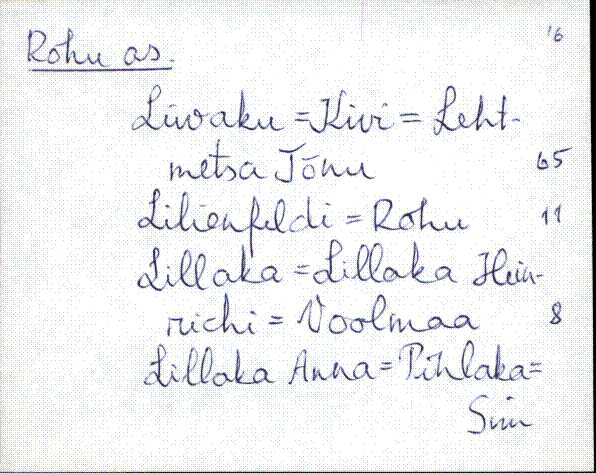 Rohu as. 16
Liivaku = Kivi = Leht-
metsa Tõnu 65
Lilienfeldi = Rohu 11
Lillaka = Lillaka Hein-
richi = Voolmaa 8
Lillaka Anna = Pihlaka =
Siim